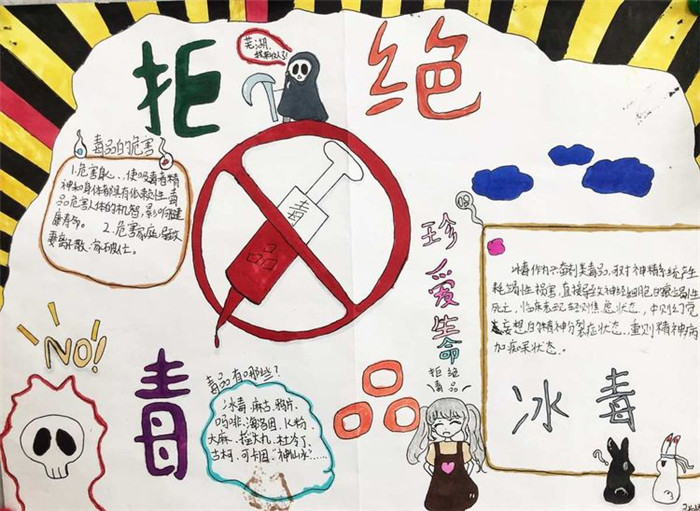 拒
绝
毒品的危害
1.危害身心、使吸毒者精
神和身体都具有依赖性 毒
品危害人体的机智,影响健
康寿命。 2.危害家庭,导致
妻离子散、家破人亡。
毒
珍爱生命
拒绝
毒品
NO!
毒
品
毒品有哪些?
冰毒、麻古、鸦片、
吗啡、海洛因、K粉
大麻、摇头丸、杜冷丁、
古柯、可卡因"神仙水"……
冰毒作为兴奋剂类毒品,对神经系统产生
耗竭性损害,直接导致神经细胞
死亡,临床表现轻则焦虑状态,中则幻觉
妄想的精神分裂症状态,重则精神病
加痴呆状态。
冰毒